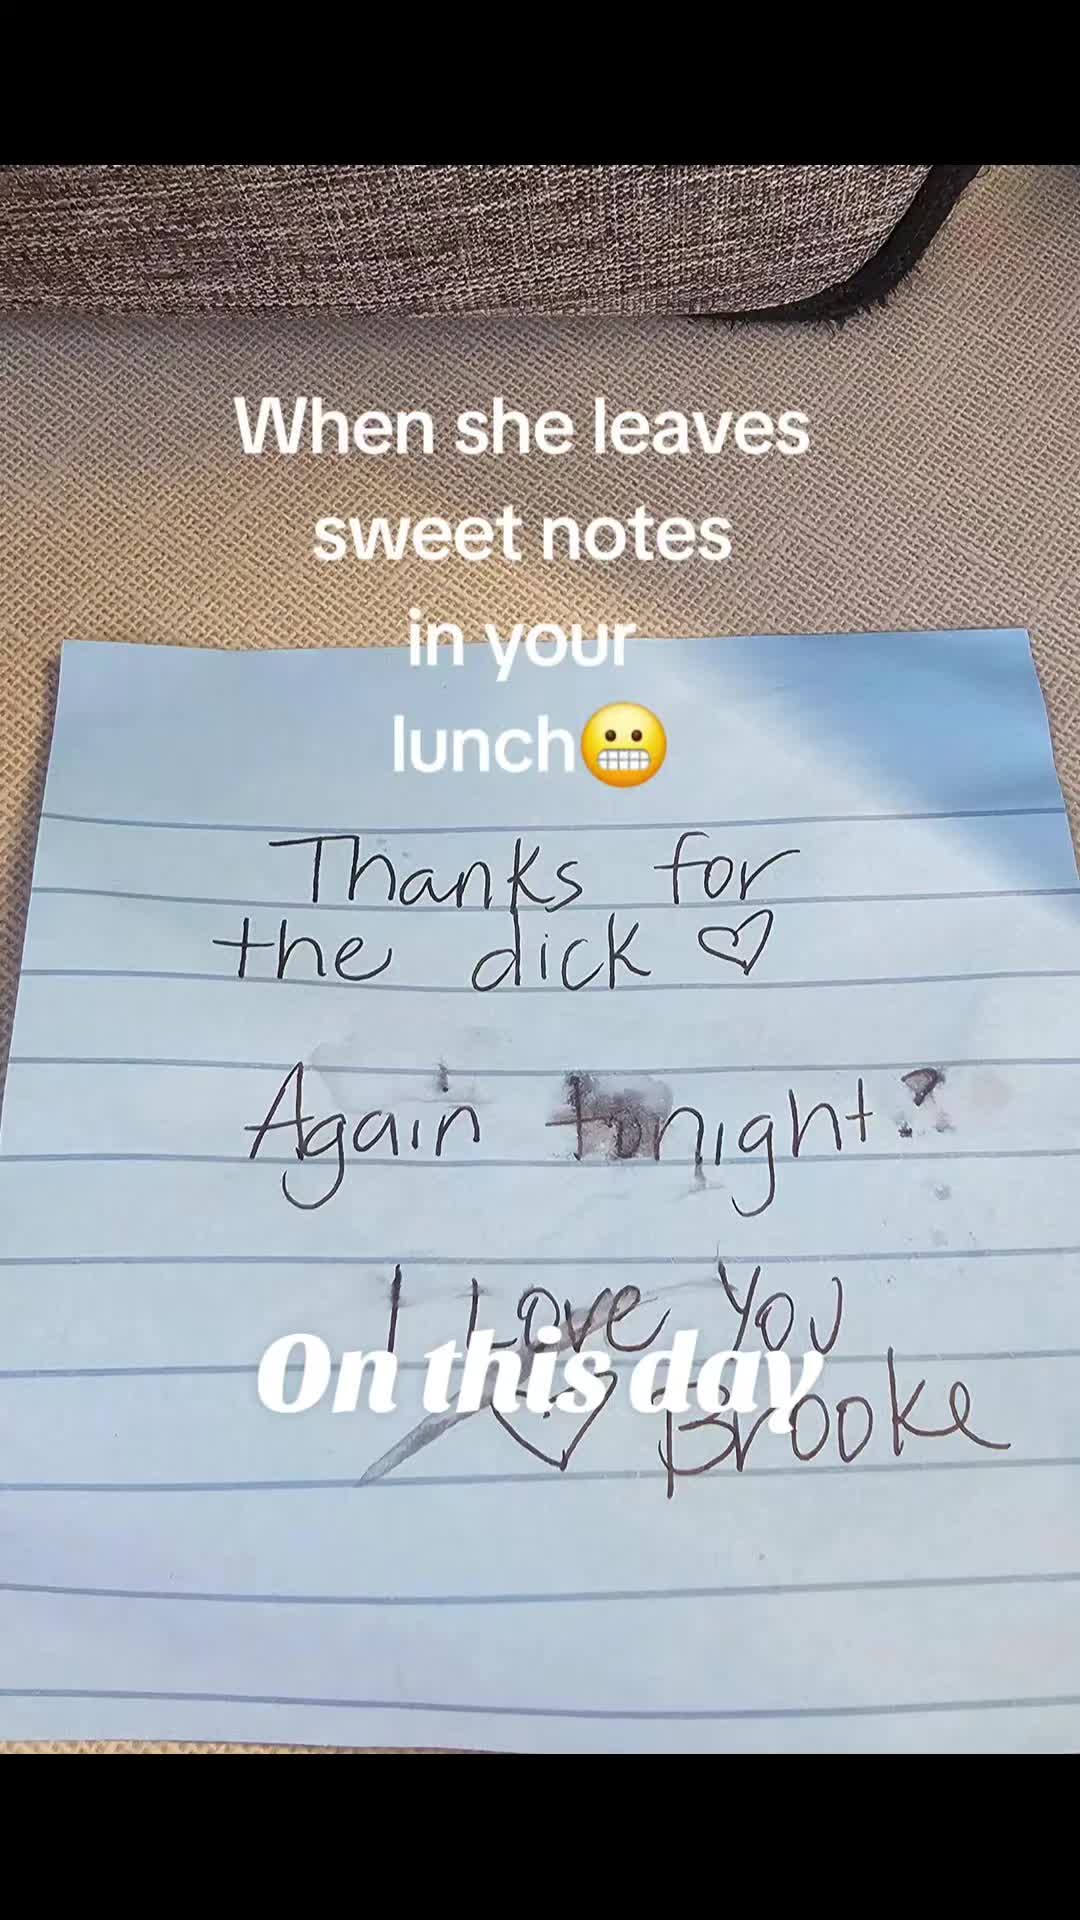 When she leaves
sweet notes
in your
lunch😬
Thanks for
the dick ♡
Again tonight?
I Love You
On this day
♡ Brooke